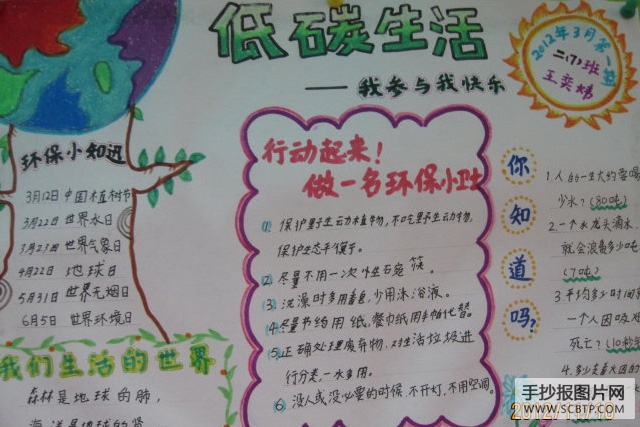 低碳生活
——我参与我快乐
2012年3月第一期
二(7)班
王奕
环保小知识
3月12日 中国植树节
3月22日 世界水日
3月23日 世界气象日
4月22日 地球日
5月31日 世界无烟日
6月5日 世界环境日
我们生活的世界
森林是地球的肺,
海洋是地球的肾
行动起来!
做一名环保小卫士
1. 保护野生动植物,不吃野生动物,
保护生态平衡。
2. 尽量不用一次性生碗筷。
3. 洗澡时多用香皂,少用沐浴液。
4. 尽量节约用纸,餐巾纸用手帕代替。
5. 正确处理废弃物,对生活垃圾进
行分类,一水多用。
6. 没人或没必要的时候,不开灯,不用空调。
你知道吗?
1. 人的一生大约要喝
少水?(80吨)
2. 一个水龙头滴水,
就会浪费多少吨
(7吨)
3. 平均多少时间
一个人因吸
死亡?(10秒
4. 多少
手抄报图片网
WWW.SCBTP.COM